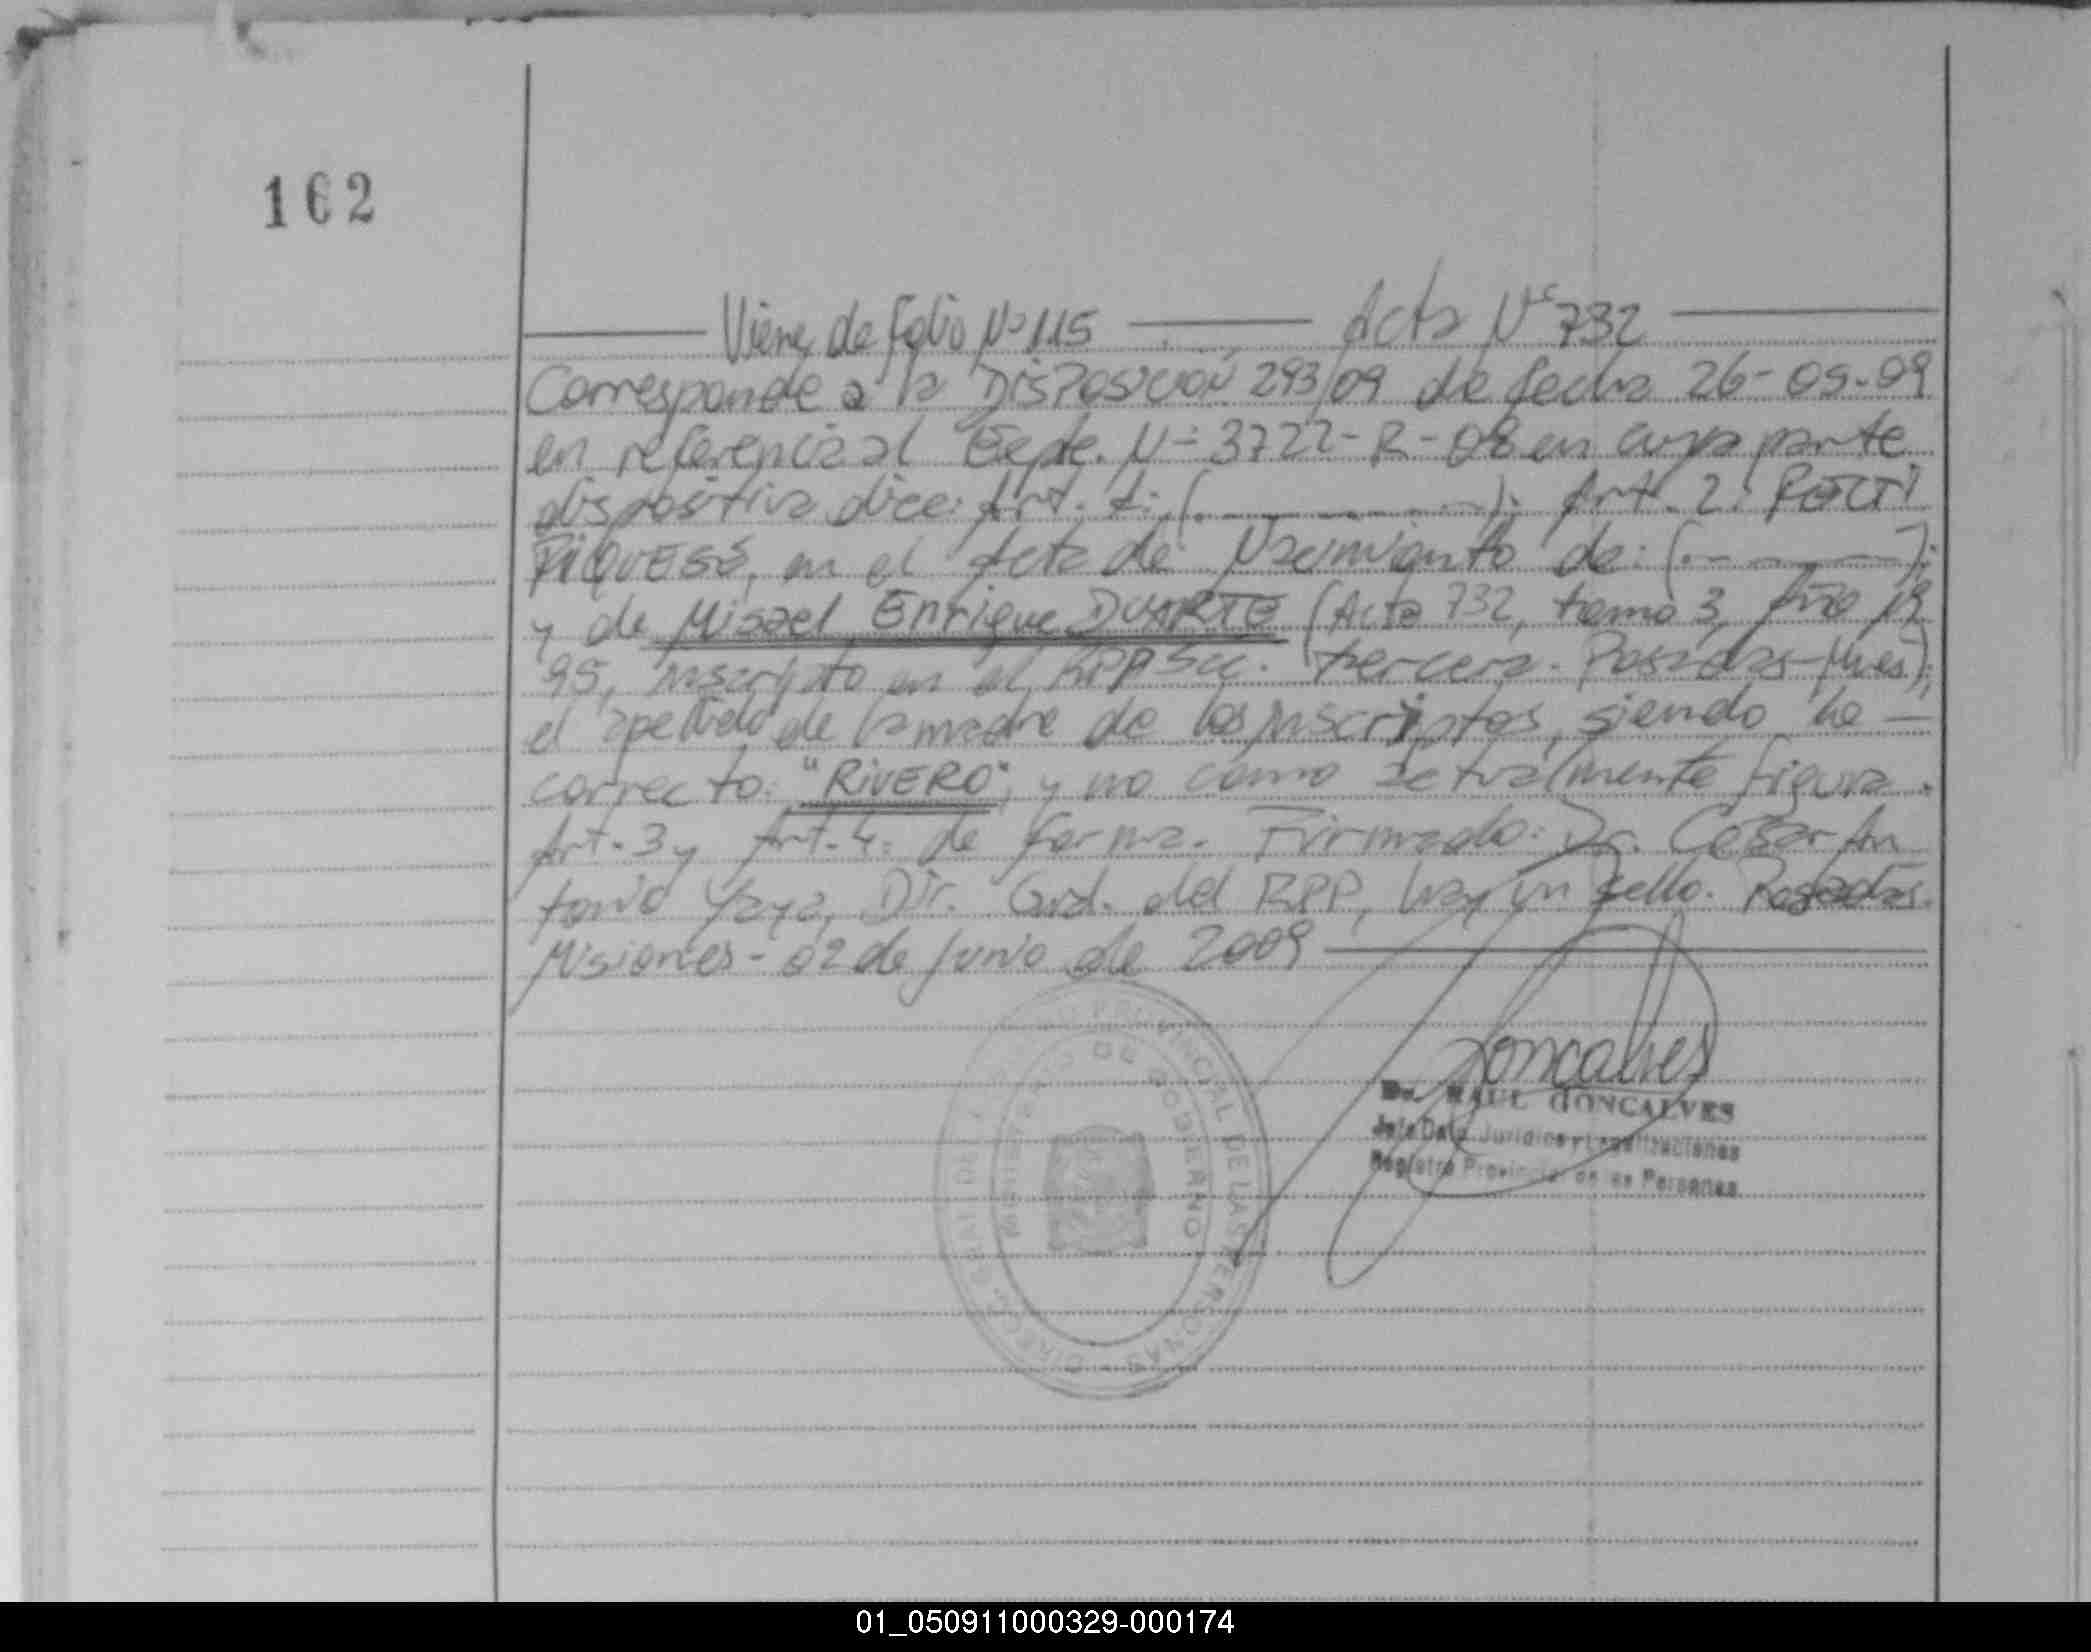 162
Viene de folio Nº 115 Acta Nº 732
Corresponde a la DISPOSICION 293/09 de fecha 26-05-09
en referencia al Expte. Nº 3722-R-08 en cuya parte
dispositiva dice: Art. 1: (. ); Art. 2: RECTI
FIQUESE, en el Acta de Nacimiento de: (. );
y de Misael Enrique DUARTE (Acta 732, tomo 3, Año 19
95, inscripto en el RPP Sec. tercera. Posadas-Mnes);
el apellido de la madre de los inscriptos, siendo lo
correcto: "RIVERO", y no como actualmente figura.
Art. 3 y Art. 4: de forma. Firmado: Dr. César An
tonio Yaya, Dir. Gral. del RPP, hay un sello. Posadas.
Misiones - 02 de Junio de 2009
Goncalves
Dr. RAUL GONCALVES
Jefe Dpto. Jurídico y Legalizaciones
Registro Provincial de las Personas
PROVINCIAL DE LAS PERSONAS
MINISTERIO DE GOBIERNO
01_050911000329-000174